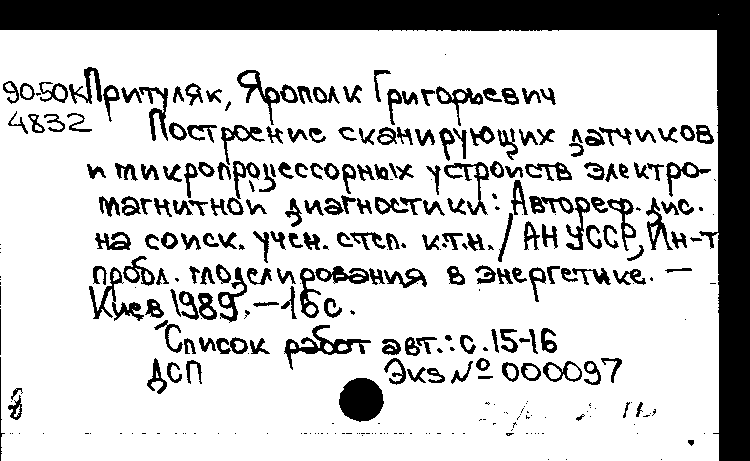 90-50К Притуляк, Ярополк Григорьевич
4832 Построение сканирующих датчиков
и микропроцессорных устройств электро-
магнитной диагностики: Автореф. дис.
на соиск. учен. степ. к.т.н. / АН УССР, Ин-т
пробл. моделирования в энергетике. —
Киев, 1989. — 16 с.
Список работ авт.: с. 15-16
ДСП Экз № 000097